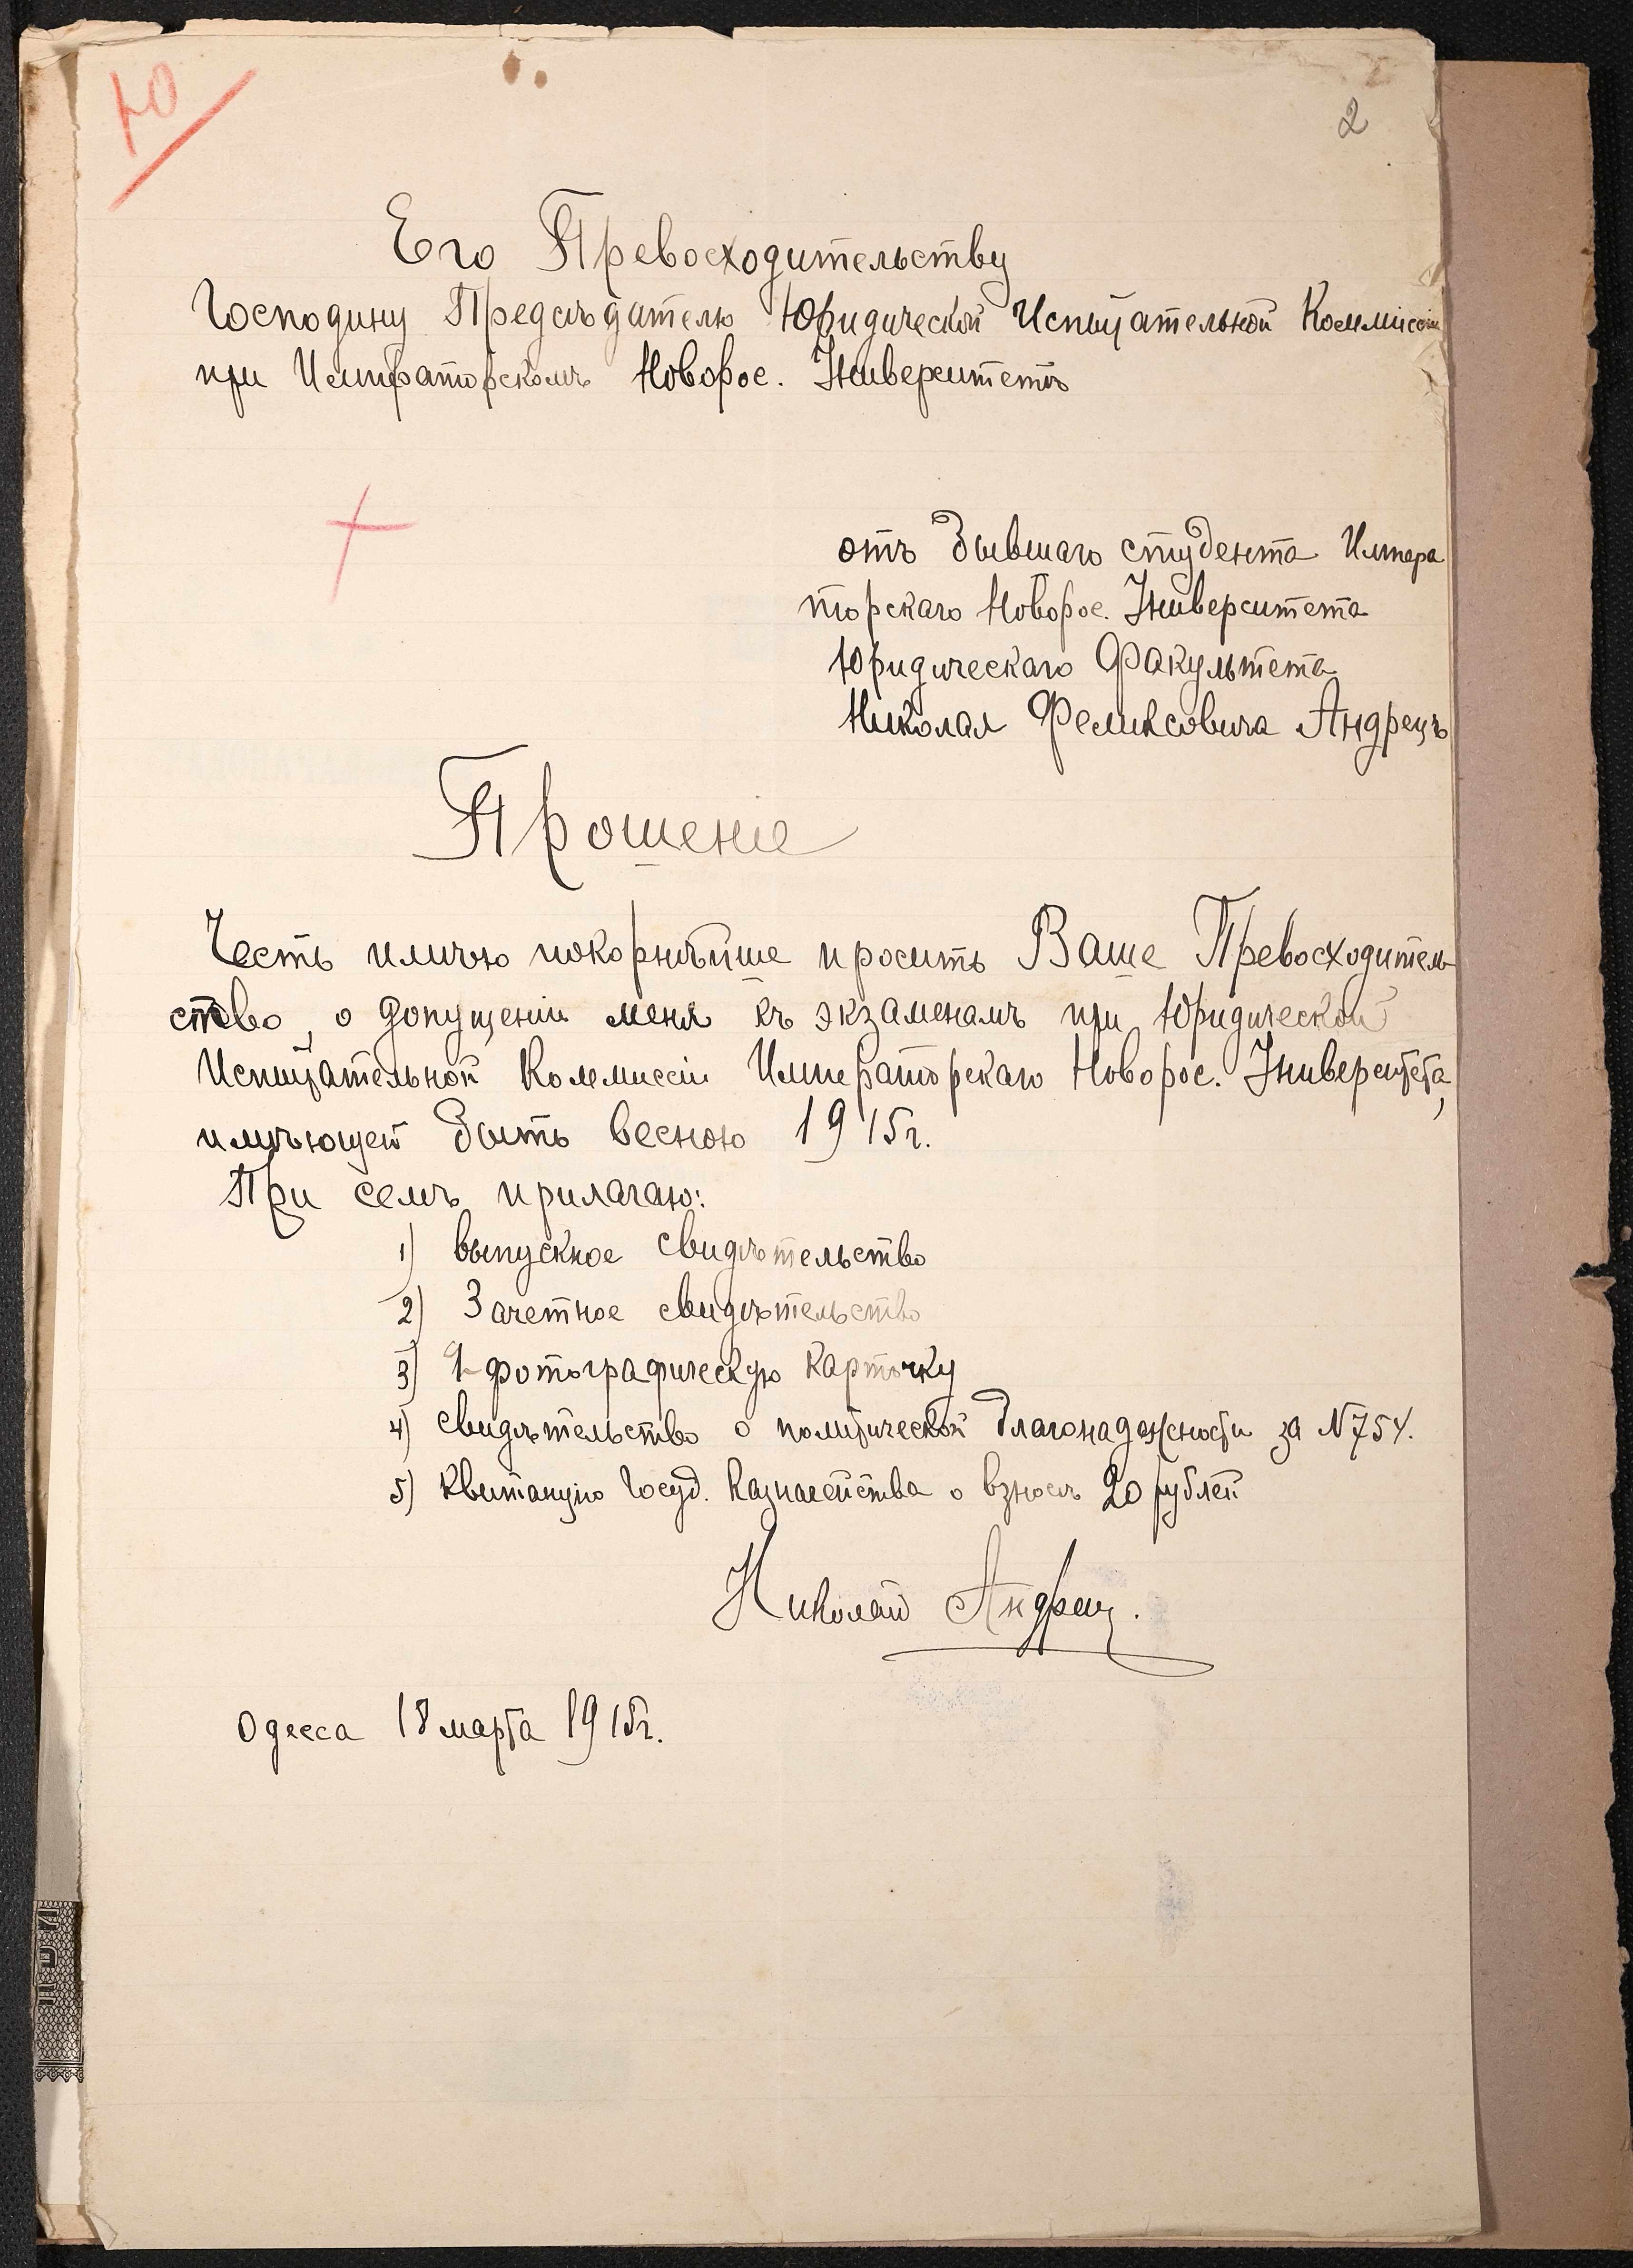 Ю
2
Его Превосходительству
Господину Предсѣдателю Юридической Испытательной Коммиссіи
при Императорскомъ Новорос. Университетѣ
отъ бывшаго студента Импера
торскаго Новорос. Университета
Юридическаго Факультета
Николая Феликсовича Андрецъ
Прошеніе
Честь имѣю покорнѣйше просить Ваше Превосходитель
ство, о допущеніи меня къ экзаменамъ при Юридической
Испытательной Коммиссіи Императорскаго Новорос. Университета,
имѣющей быть весною 1915г.
При семъ прилагаю:
1) выпускное свидѣтельство
2) Зачетное свидѣтельство
3) 1 фотографическую карточку
4) свидѣтельство о политической благонадежности за №754.
5) квитанцію Госуд. Казначейства о взносѣ 20 рублей
Николай Андрец.
Одесса 18 марта 1915г.